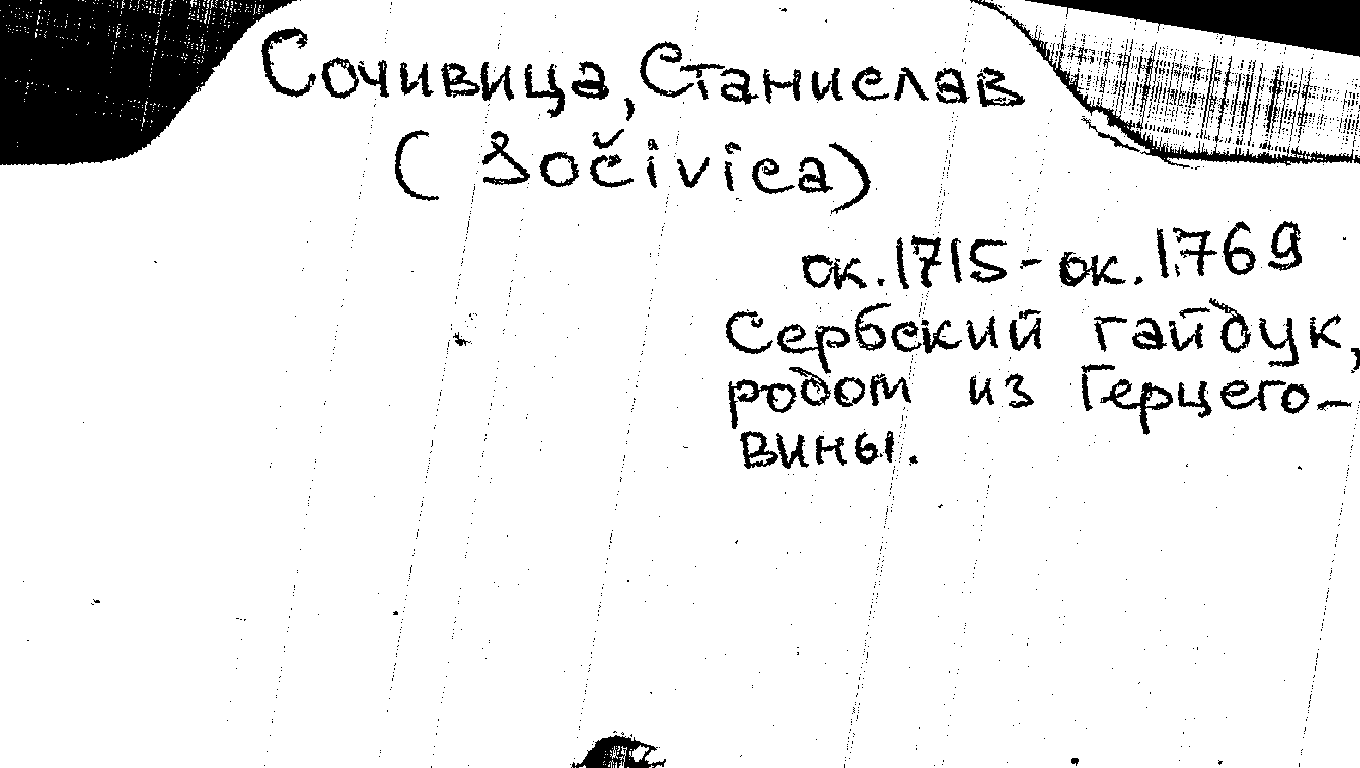 Сочивица, Станислав
(Sočivica)
ок. 1715 - ок. 1769
Сербский гайдук,
родом из Герцего-
вины.